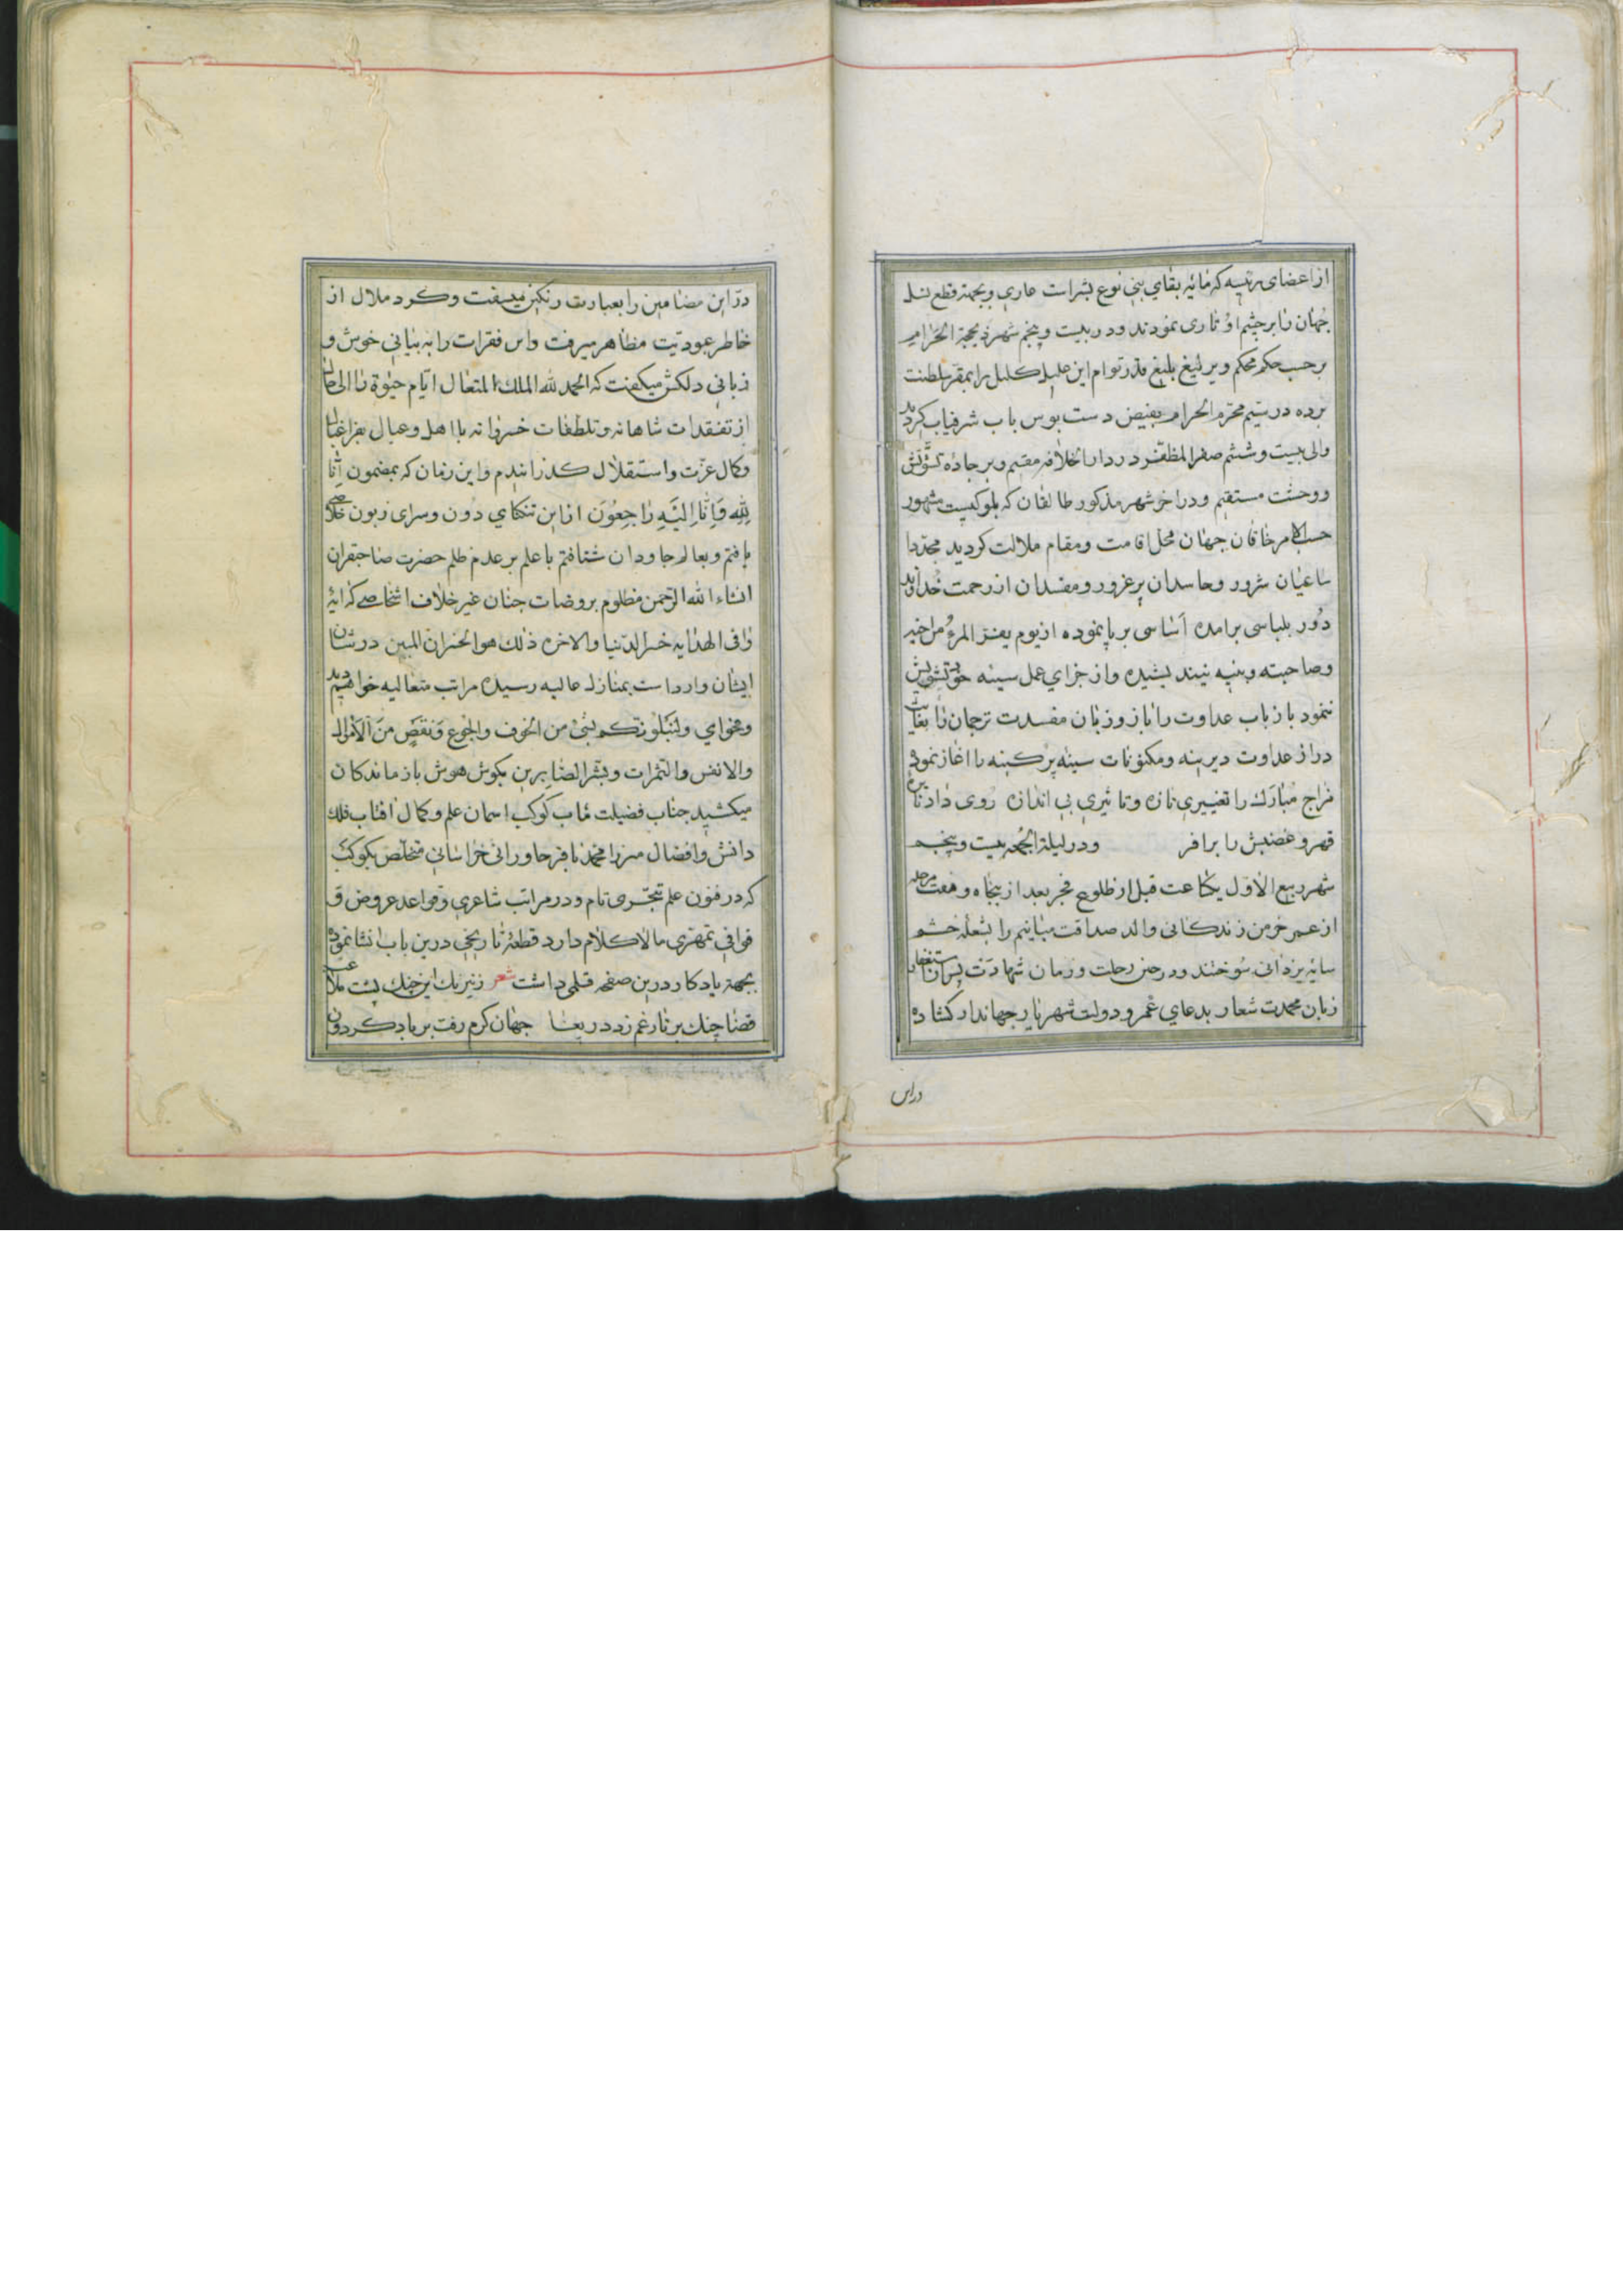 از اعضای رئیسه که مائیه بقای بنی نوع بشر است عاری و بجهة قطع نسل
جهان را بر چشم او تاری نمودند و در بیست و پنجم شهر ذیحجة الحرام
برحسب حکم محکم و یرلیغ بلیغ قدر توام این علیل کلیل را بمقر سلطنت
برده در سیم محرم الحرام بفیض دست بوس باب شرفیاب کردید
والی بیست و ششم صفر المظفر در دار الخلافه مقیم و بر جاده تشویش
و وحشت مستقیم و در اخر شهر مذکور طالقان که بلوکیست مشهور
حسب الامر خاقان جهان محل اقامت و مقام ملالت کردید مجددا
ساعیان شرور و حاسدان پرغرور و مفسدان از رحمت خداوند
دور بلباسی برامده اساسی برپا نموده از یوم یفر المرء من اخیه
و صاحبته و بنیه نیندیشیده و از جزای عمل سیئه خود تشویش
ننمود باز باب عداوت را باز و زبان مفسدت ترجمان را بغایت
دراز عداوت دیرینه و مکنونات سینه پرکینه را اغاز نموده
مزاج مبارک را تغییری تازه و تاثیری بی اندازه روی داد نایره
قهر و غضبش را برافر و در لیلة الجمعه بیست و پنجم
شهر ربیع الاول یکساعت قبل از طلوع فجر بعد از پنجاه و هفت مرحله
از عمر خرمن زندکانی والد صداقت مبانیم را بشعله خشم
سایه یزدانی سوختند و در حین رحلت و زمان شهادت پس از استغفار
زبان محمدت شعار بدعای عمر و دولت شهریار جهاندار کشاده
دراین
در این مضامین را بعبارت رنکین میسفت و کرد ملال از
خاطر عبودیت مظاهر میرفت و این فقرات را به بیانی خوش و
زبانی دلکش میکفت که الحمد لله الملک المتعال ایام حیوة را الی حال
از تفقدات شاهانه و تلطفات خسروانه با اهل و عیال بفراغبال
و کمال عزت و استقلال کذرانیدم و این زمان که بمضمون انا
لله و انا الیه راجعون از این تنکنای دون و سرای زبون خلاصی
یافتم و بعالم جاودان شتافتم با علم بر عدم ظلم حضرت صاحبقران
انشاء الله الرحمن مظلوم بروضات جنان غیر خلاف اشخاصی که ایه
وافی الهدایه خسر الدنیا والاخره ذلک هو الخسران المبین در شان
ایشان وارد است بمنازل عالیه رسیده مراتب متعالیه خواهیم دید
و فحوای ولنبلونکم بشئ من الخوف والجوع ونقص من الاموال
والانفس والثمرات وبشر الصابرین بکوش هوش بازماندکان
میکشید جناب فضیلت ماب کوکب اسمان علم و کمال افتاب فلک
دانش و افضال میرزا محمد باقر خاورانی خراسانی متخلص بکوکب
که در فنون علم تبحری تام و در مراتب شاعری و قواعد عروض و
قوافی تمهری مالا کلام دارد قطعه تاریخی درین باب انشا نموده
بجهة یادکار درین صفحه قلمی داشت شعر ز نیرنک این خنک پشت
قضا چنک بر تار غم زد دریغا جهان کرم رفت بر باد کردون